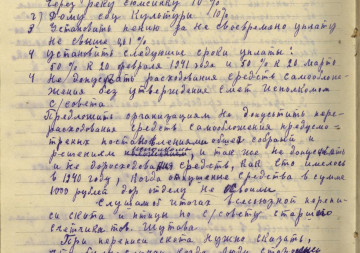 через реку Сюмсинку 10%
2) Дому соц. Культуры 10%
3 Установить пению за не своевремено уплату
не свыше
4 Установите следующие сроки уплаты:
50% к 20 февраля 1941 года и 50% к 20 марта
4 Не допускать расходования средств самообло-
жения без утверждения смет Исполкомом
с/совета
Предложить организациям не допустить пере-
расходования средств самообложения предусмо-
тренных постановлениями общих собраний и
решением и так же не допускать
и не дорасходования средств, как это имелось
в 1940 году, когда отпущение средств в сумме
1000 рублей дор отделу не
Слушали: итогах всесоюзной перепи-
си скота и птицы по с/совету старшего
счетчика тов. Шутова.
При переписи скота нужно сказать,
что были случаи когда люди